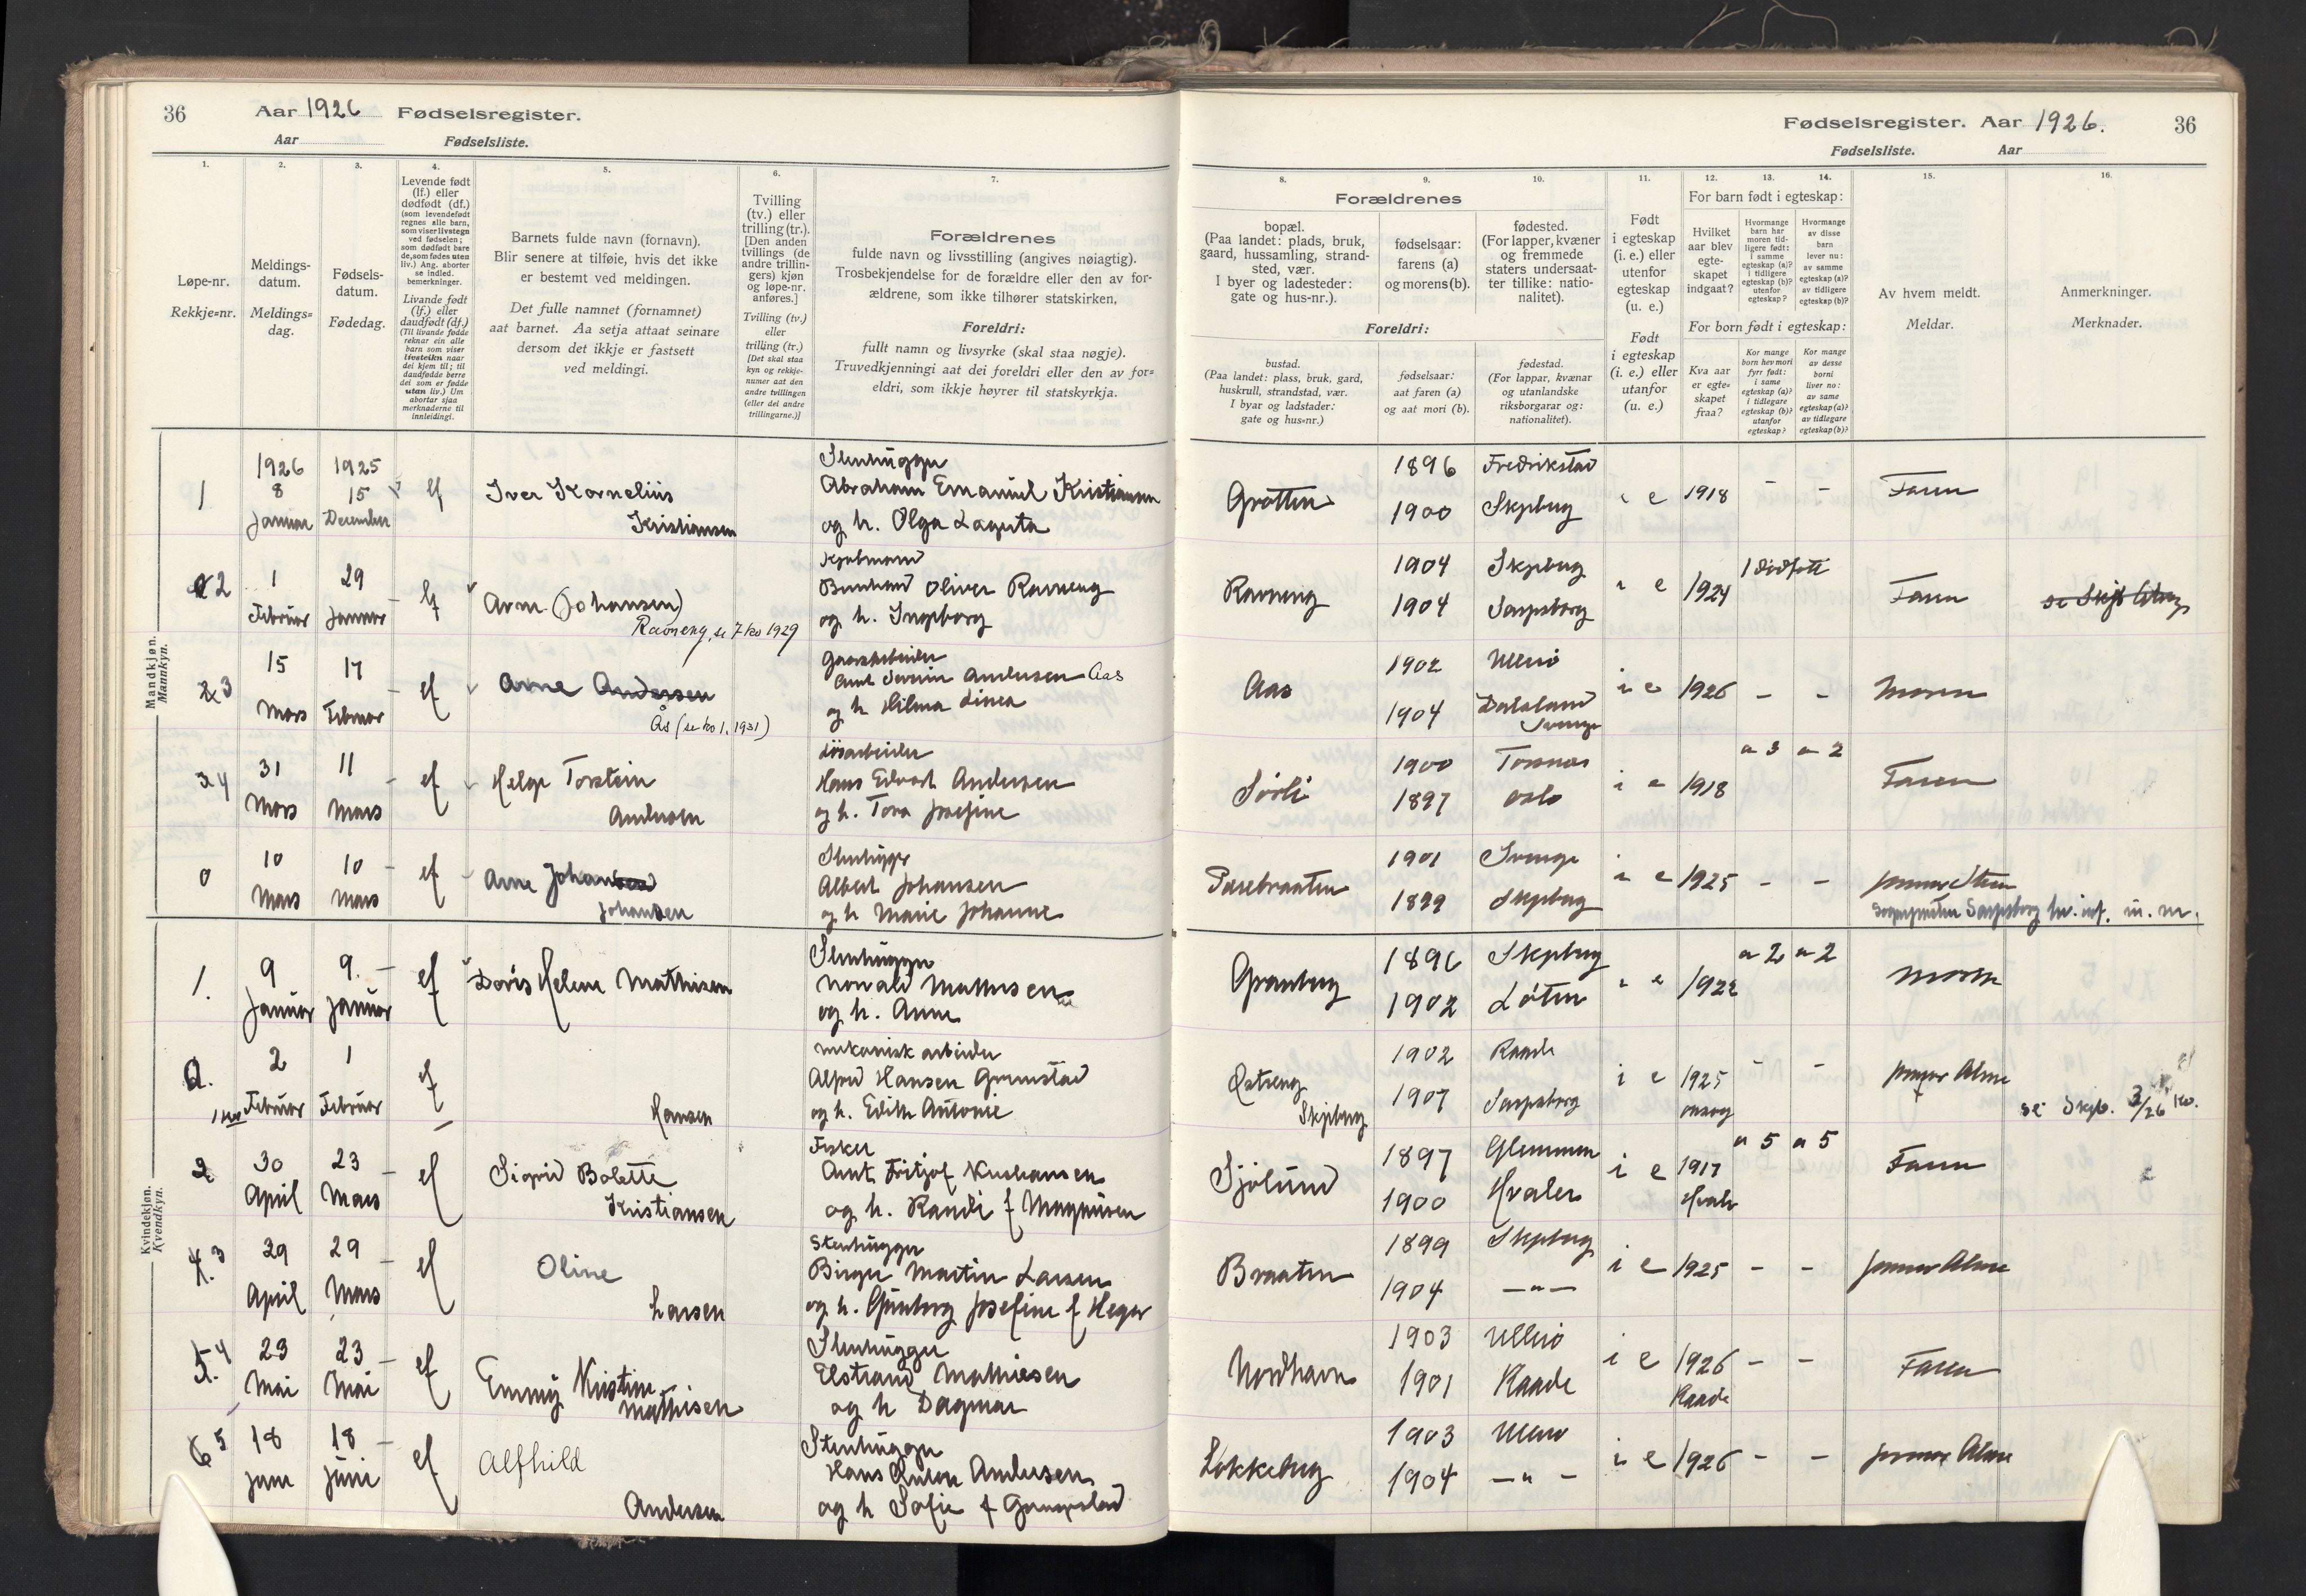 36
Aar 1926 Fødselsregister.
Aar Fødselsliste.
1.
2.
3.
4.
5.
6.
7.
Løpe-nr.
Rekkje=nr.
Meldings-
datum.
Meldings=
dag.
Fødsels-
datum.
Fødedag.
Levende født
(lf.) eller
dødfødt (df.)
(som levendefødt
regnes alle barn,
som viser livstegn
ved fødselen;
som dødfødt bare
de, som fødes uten
liv.) Ang. aborter
se indled.
bemerkninger.
Livande født
(lf.) eller
daudfødt (df.)
(Til livande fødde
reknar ein alle
barn som viser
livsteikn naar
dei kjem til; til
daudfødde berre
dei som er fødde
utan liv.) Um
abortar sjaa
merknaderne til
innleidingi.
Barnets fulde navn (fornavn).
Blir senere at tilføie, hvis det ikke
er bestemt ved meldingen.
Det fulle namnet (fornamnet)
aat barnet. Aa setja attaat seinare
dersom det ikkje er fastsett
ved meldingi.
Tvilling
(tv.) eller
trilling (tr.).
[Den anden
tvillings (de
andre trillin-
gers) kjøn
og løpe-nr.
anføres.]
Tvilling (tv.)
eller
trilling (tr.)
[Det skal staa
kyn og rekkje-
numer aat den
andre tvillingen
(eller dei andre
trillingarne.)]
Forældrenes
fulde navn og livsstilling (angives nøiagtig).
Trosbekjendelse for de forældre eller den av for-
ældrene, som ikke tilhører statskirken.
Foreldri:
fullt namn og livsyrke (skal staa nøgje).
Truvedkjenningi aat dei foreldri eller den av for=
eldri, som ikkje høyrer til statskyrkja.
Mandkjøn.
Mannkyn.
1
1926
8
Januar
1925
15
December
lf
Iver Kornelius
Kristiansen
Stenhugger
Abraham Emanuel Kristiansen
og h. Olga Lagerta
2
1
Februar
29
Januar
lf
Arne (Johansen)
Ravneng, se 7 ko 1929
Bernhard Oliver Ravneng
og h. Ingeborg
3
15
Mars
17
Februar
lf
Arne Andersen
Ås (se ko 1. 1931)
Gaardsarbeider
Arnt Severin Andersen Aas
og h Hilma Linea
3 4
31
Mars
11
Mars
lf
Helge Torstein
Andersen
Løsarbeider
Hans Edvart Andersen
og h. Tora Josefine
0
10
Mars
10
Mars
lf
Arne Johansen
Johansen
Stenhugger
Albert Johansen
og h Marie Johanne
Kvindekjøn.
Kvendkyn.
1.
9
Januar
9.
Januar
lf
Doris Helene Mathisen
Stenhugger
Mathisen
og h. Anne
2.
2
Februar
1
Februar
lf
Hansen
mekanisk arbeider
Alfred Hansen Grimstad
og h. Edith Antonie
2
30
April
23
Mars
lf
Sigrid Bolette
Kristiansen
Fisker
Arnt Fritjof Kristiansen
og h. Randi f Magnusen
4. 3
29
April
29
Mars
lf
Oline
Larsen
Stenhugger
Birger Martin Larsen
og h. Gunborg Josefine f Heger
5. 4
23
Mai
23
Mai
lf
Emmy Kristine
Mathisen
Stenhugger
Elstrand Mathiesen
og h Dagmar
6 5
18
Juni
18
Juni
lf
Alfhild
Andersen
Stenhugger
Hans Andersen
og h Sofie f
Fødselsregister. Aar 1926. 36
Fødselsliste. Aar
8.
9.
10.
11.
12.
13.
14.
15.
16.
Forældrenes
bopæl.
(Paa landet: plads, bruk,
gaard, hussamling, strand-
sted, vær.
I byer og ladesteder:
gate og hus-nr.).
fødselsaar:
farens (a)
og morens (b).
fødested.
(For lapper, kvæner
og fremmede
staters undersaat-
ter tillike: natio-
nalitet).
Foreldri:
bustad.
(Paa landet: plass, bruk, gard,
huskrull, strandstad, vær.
I byar og ladstader:
gate og hus=nr.)
fødselsaar:
aat faren (a)
og aat mori (b).
fødestad.
(For lappar, kvænar
og utanlandske
riksborgarar og:
nationalitet).
Født
i egteskap
(i. e.) eller
utenfor
egteskap
(u. e.)
Født
i egteskap
(i. e.) eller
utanfor
(u. e.)
For barn født i egteskap:
Hvilket
aar blev
egte-
skapet
indgaat?
Hvormange
barn har
moren tid-
ligere født:
i samme
egteskap (a)?
i tidligere
egteskap (b)?
utenfor
egteskap?
Hvormange
av disse
barn
lever nu:
av samme
egteskap (a)?
av tidligere
egteskap (b)?
For born født i egteskap:
Kva aar
er egte=
skapet
fraa?
Kor mange
born hev mori
fyrr født:
i same
egteskap (a)?
i tidlegare
egteskap (b)?
utanfor
egteskap?
Kor mange
av desse
borni
liver no:
av same
egteskap (a)?
av tidlegare
egteskap (b)?
Av hvem meldt.
Meldar.
Anmerkninger.
Merknader.
Grøtten
1896
1900
Fredrikstad
Skjeberg
i e
1918
-
-
Faren
Ravneng
1904
1904
Skjeberg
Sarpsborg
i e
1924
1 dødfødt
Faren
Aas
1902
1904
Ullerø
Dalsland
Sverige
i e
1926
-
-
Moren
Sørli
1900
1897
Torsnes
Oslo
i e
1918
a 3
a 2
Faren
1901
1899
Sverige
Skjeberg
i e
1925
-
-
Granberg
1896
1902
Skjeberg
Løten
i e
1922
a 2
a 2
Moren
Østreng
Skjeberg
1902
1907
Raade
Sarpsborg
i e
1925
Onsøy
-
-
se Skjb. 3/26 ko.
Sjølund
1897
1900
Glemmen
Hvaler
i e
1917
Hvaler
a 5
a 5
Faren
Braaten
1899
1904
Skjeberg
—"—
i e
1925
-
-
Nordhavn
1903
1901
Ullerø
Raade
i e
1926
Raade
-
-
Faren
Løkkeberg
1903
1904
Ullerø
—"—
i e
1926
-
-